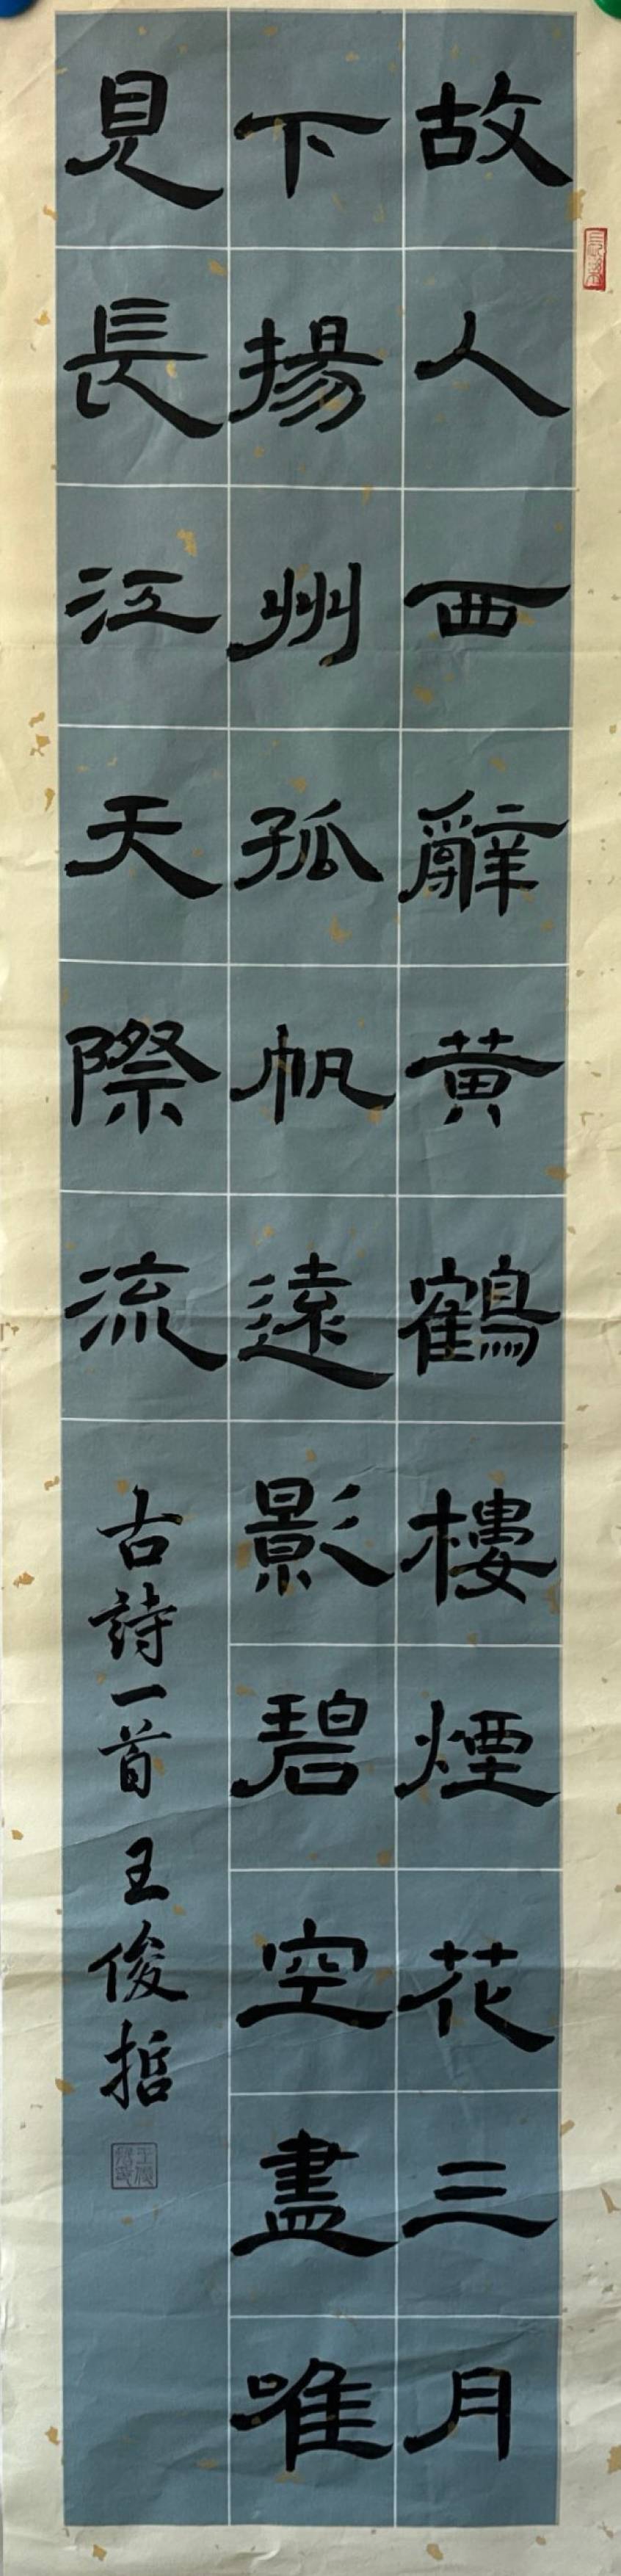 故人西辭黄鶴樓煙花三月
下揚州孤帆遠影碧空盡唯
見長江天際流
古詩一首 王俊哲